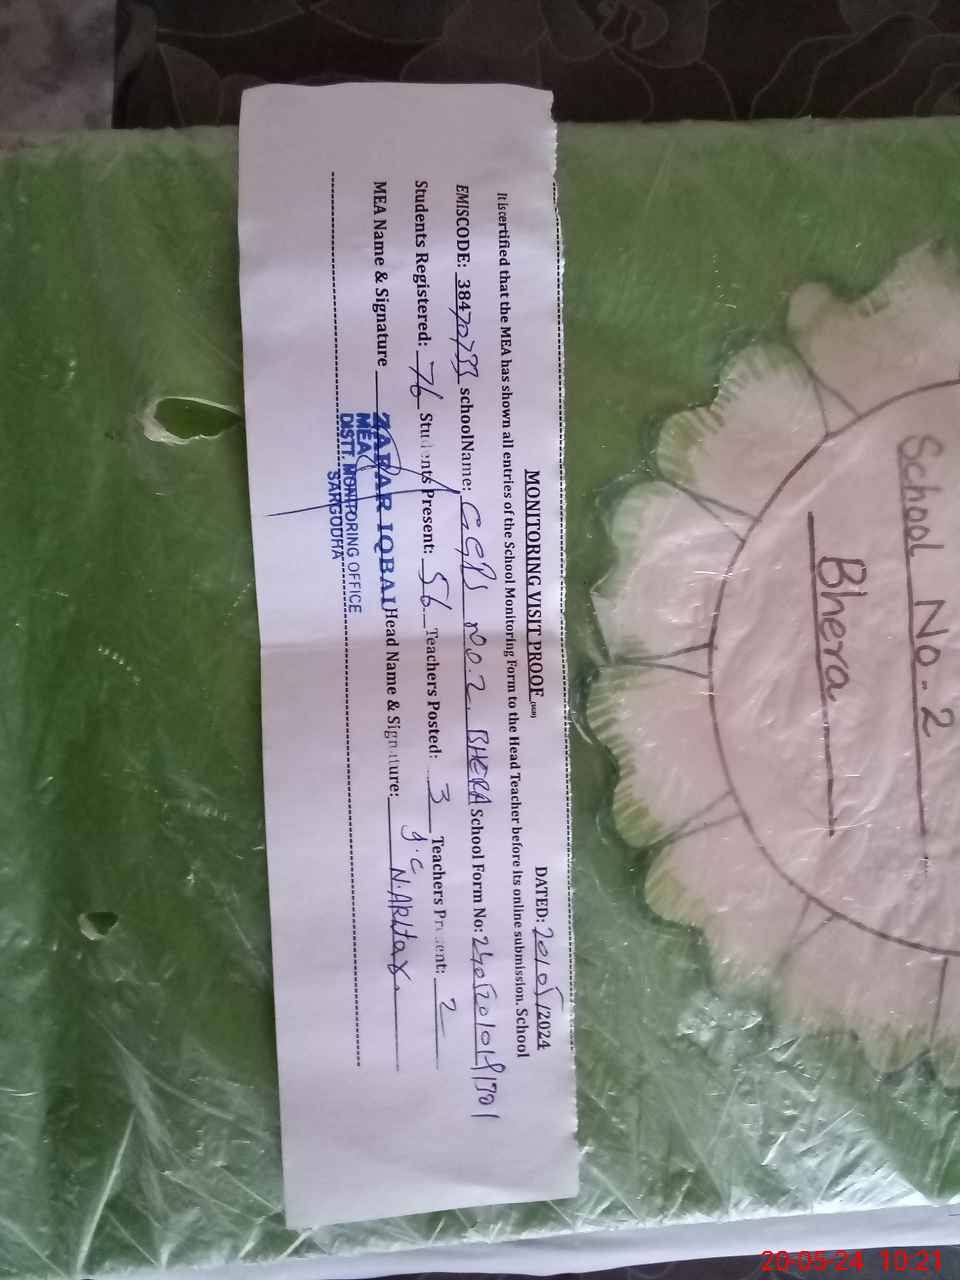 MONITORING VISIT PROOF DATED: 20/05/2024
It is certified that the MEA has shown all entries of the School Monitoring Form to the Head Teacher before its online submission. School
EMISCODE: 384707 schoolName: GGPS NO.2 BHERA School Form No:
Students Registered: 76 Students Present: 56 Teachers Posted: 3 Teachers Present: 2
MEA Name & Signature ZAFAR IQBAL Head Name & Signature: N. Akhtar
MEA
DISTT. MONITORING OFFICE
SARGODHA
School No. 2
Bhera
20-05-24 10:21